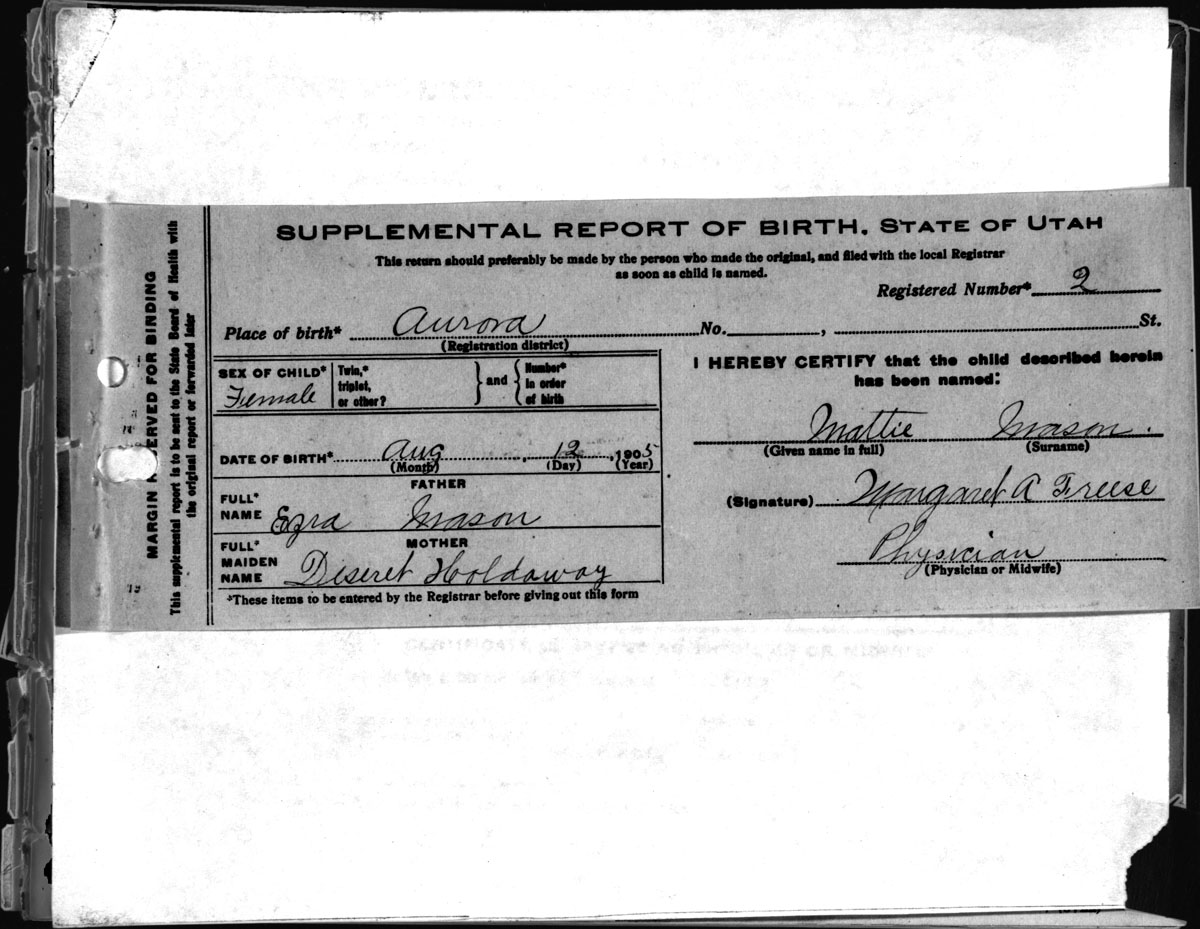 SUPPLEMENTAL REPORT OF BIRTH. STATE OF UTAH
This return should preferably be made by the person who made the original, and filed with the local Registrar
as soon as child is named.
Registered Number* 2
Place of birth* Aurora No. , St.
(Registration district)
SEX OF CHILD* Female
Twin,* triplet, or other? } and { Number* in order of birth
DATE OF BIRTH* Aug , 12 , 1905
(Month) (Day) (Year)
FATHER
FULL* NAME Ezra Mason
MOTHER
FULL* MAIDEN NAME Deseret Holdaway
*These items to be entered by the Registrar before giving out this form
I HEREBY CERTIFY that the child described herein
has been named:
Mattie Mason.
(Given name in full) (Surname)
(Signature) Margaret A Freese
Physician
(Physician or Midwife)
MARGIN RESERVED FOR BINDING
This supplemental report is to be sent to the State Board of Health with
the original report or forwarded later